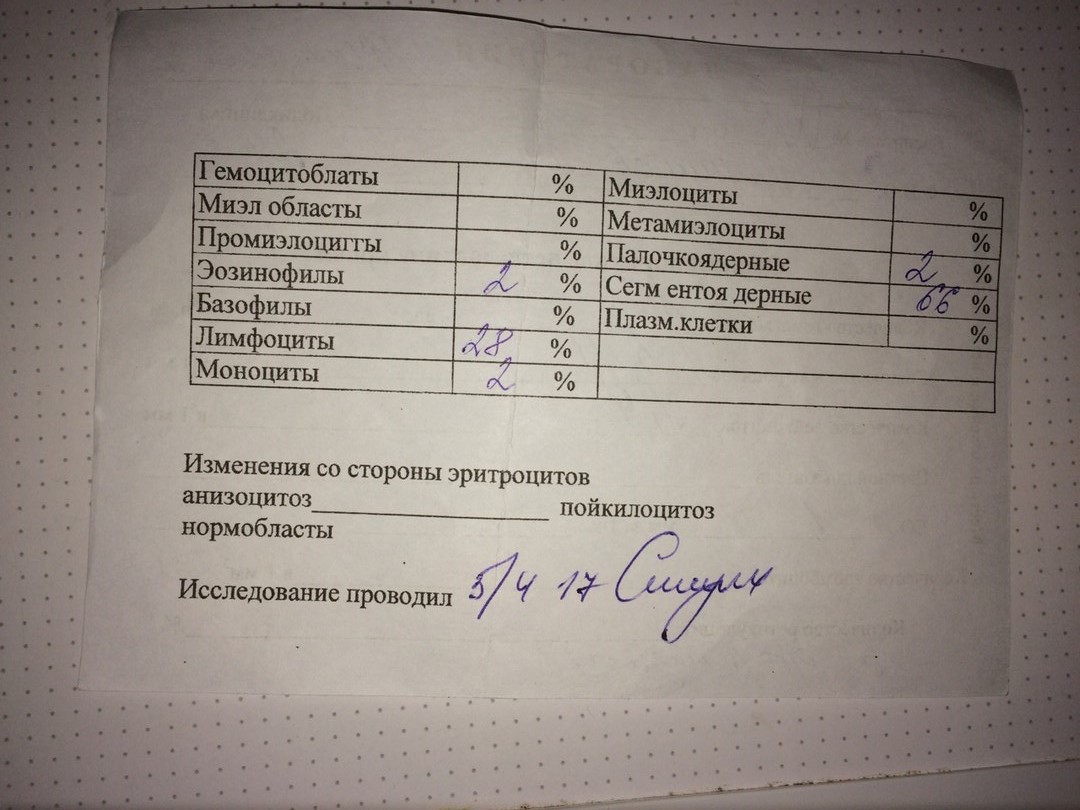 Гемоцитоблаты % Миэлоциты %
Миэл областы % Метамиэлоциты %
Промиэлоциггы % Палочкоядерные 2 %
Эозинофилы 2 % Сегм ентоя дерные 66 %
Базофилы % Плазм.клетки %
Лимфоциты 28 %
Моноциты 2 %
Изменения со стороны эритроцитов
анизоцитоз____________________ пойкилоцитоз
нормобласты
Исследование проводил 5/4 17